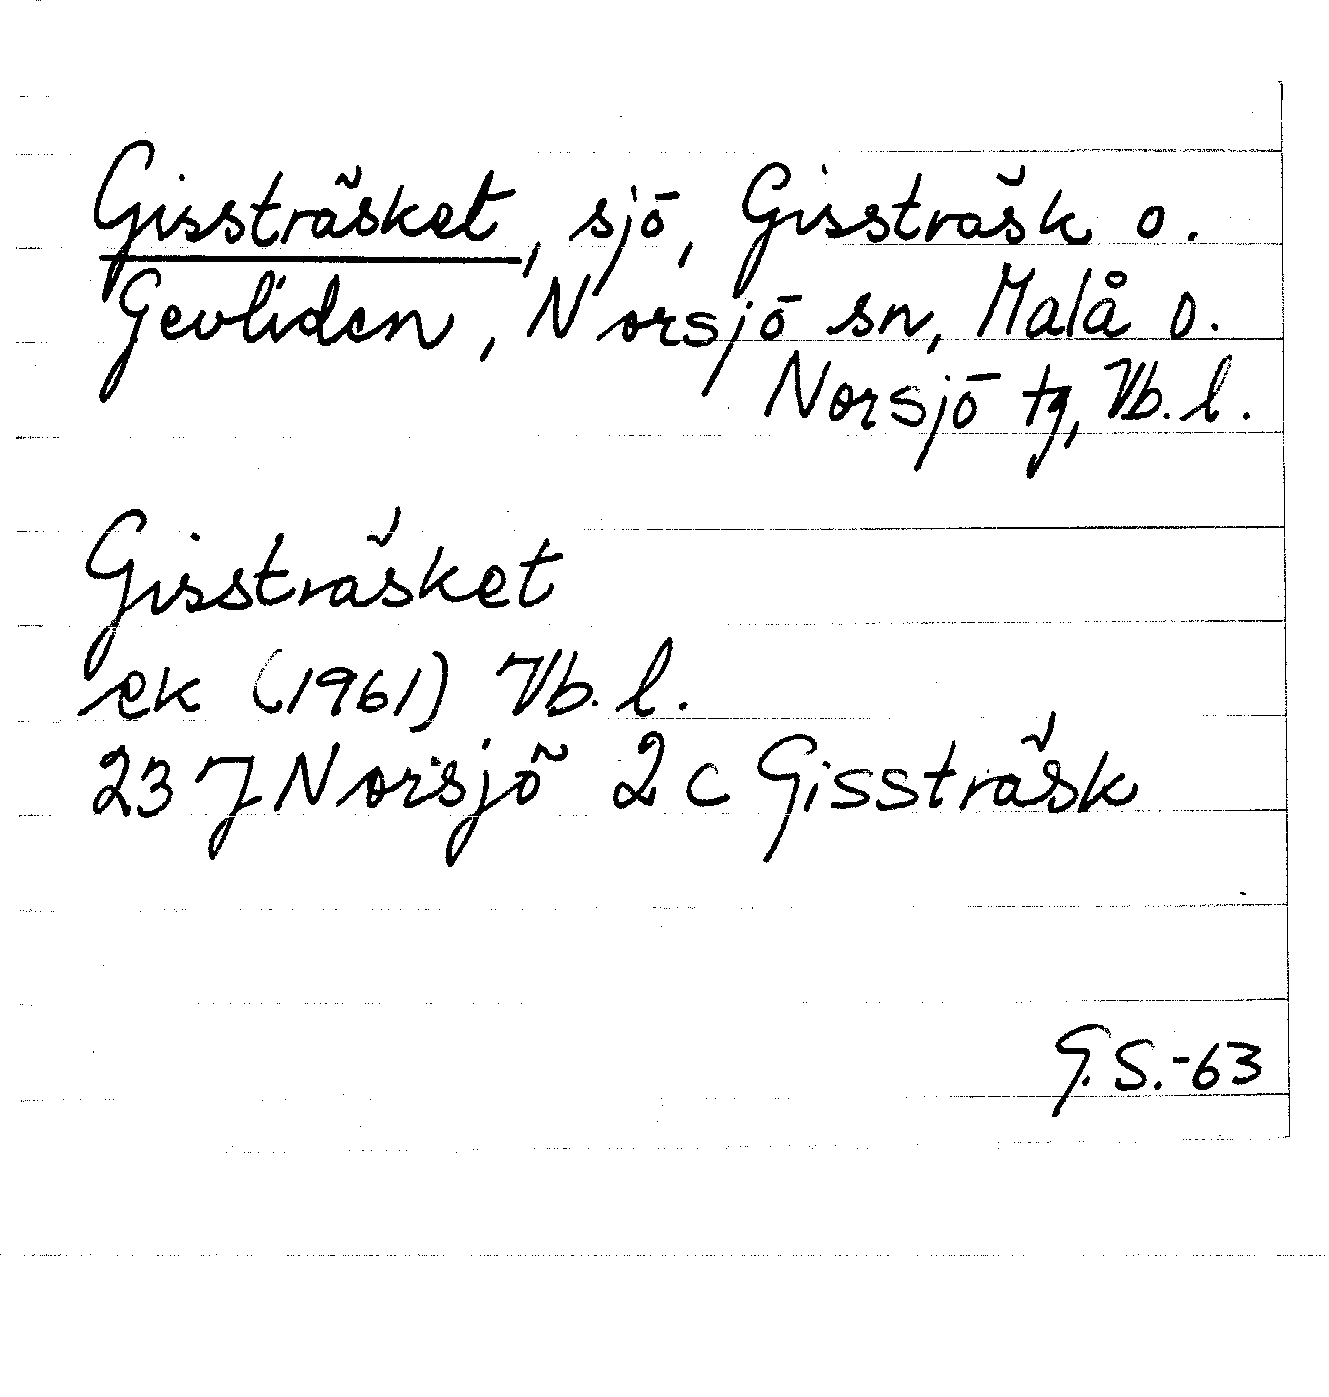 Gissträsket, sjö, Gissträsk o.
Gevliden, Norsjö sn, Malå o.
Norsjö tg, Vb. l.
Gissträsket
ek (1961) Vb. l.
23 J Norsjö 2 c Gissträsk
G. S.-63